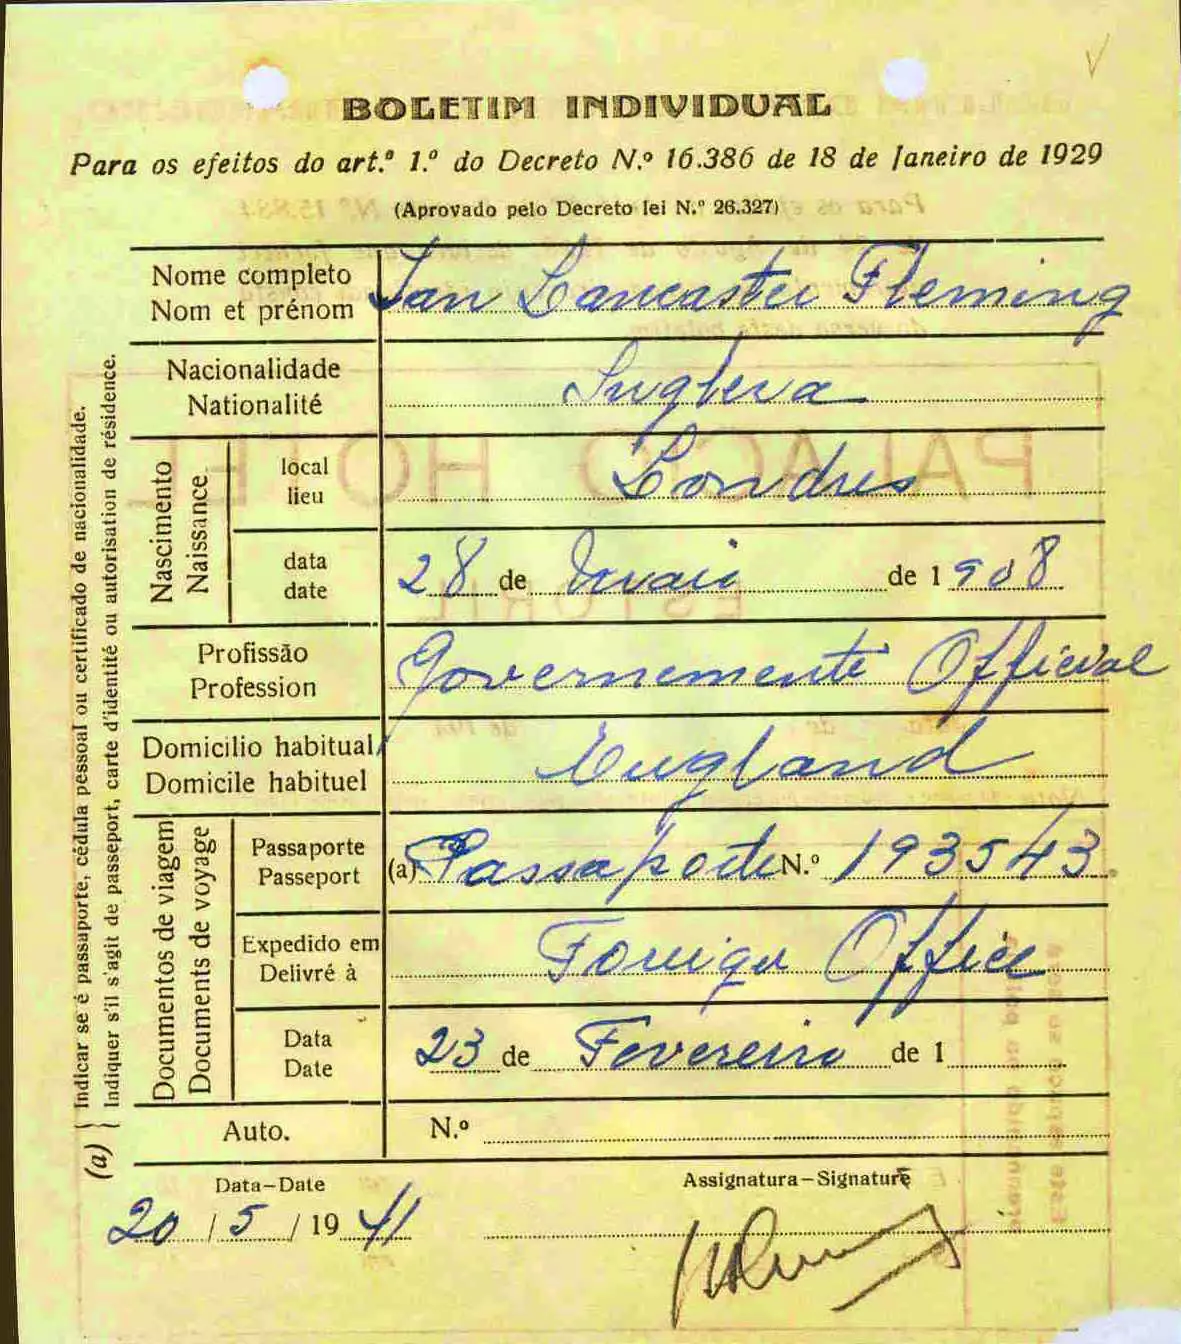 BOLETIM INDIVIDUAL
Para os efeitos do art.º 1.º do Decreto N.º 16.386 de 18 de Janeiro de 1929
(Aprovado pelo Decreto lei N.º 26.327)
Nome completo
Nom et prénom
Ian Lancaster Fleming
Nacionalidade
Nationalité
Inglesa
Nascimento
Naissance
local
lieu
Londres
data
date
28 de Maio de 1908
Profissão
Profession
Governemente Official
Domicilio habitual
Domicile habituel
England
Documentos de viagem
Documents de voyage
Passaporte
Passeport
(a) Passaporte N.º 193543.
Expedido em
Delivré à
Foreign Office
Data
Date
23 de Fevereiro de 1
Auto. N.º
Data—Date
20/5/1941
Assignatura—Signature
(a) { Indicar se é passaporte, cédula pessoal ou certificado de nacionalidade.
Indiquer s'il s'agit de passeport, carte d'identité ou autorisation de résidence.
PALACIO HOTEL
ESTORIL